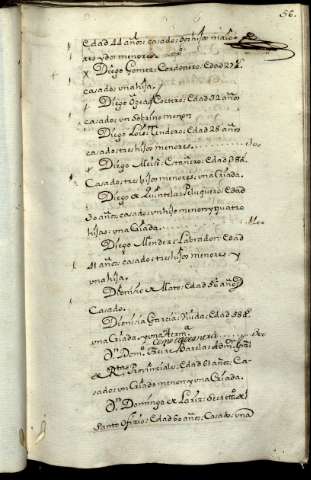 56.
Edad 44 años, casado, dos hijos maio-
res y dos menores
X Diego Gomez, Cordonero, Edad 27 a.
casado, una hija.
Diego Coetero, Edad 32 años
casado, un Sobrino menor
Diego Lopez, tendero, Edad 28 años
casado, tres hijos menores
Diego Estañero, Edad 38 a.
Casado, tres hijos menores, una Criada.
Diego de Quintela, Peluquero, Edad
30 años, casado, un hijo menor y quatro
hijas, una Criada.
Diego Mendez, Labrador, Edad
41 años, casado, tres hijos menores y
una hija.
Dionisio de Mato, Edad 50 años
Casado.
Dionisia Garcia, Viuda, Edad 58 a.
una Criada, y una Herm.a
Dn. Domo. Freire Admor. Gral
de Rtas. Provinciales, Edad 61 años, Ca-
sado, un Criado menor y una Criada.
Dn. Domingo de Secretro. del
Santo Oficio, Edad 60 años, Casado, una